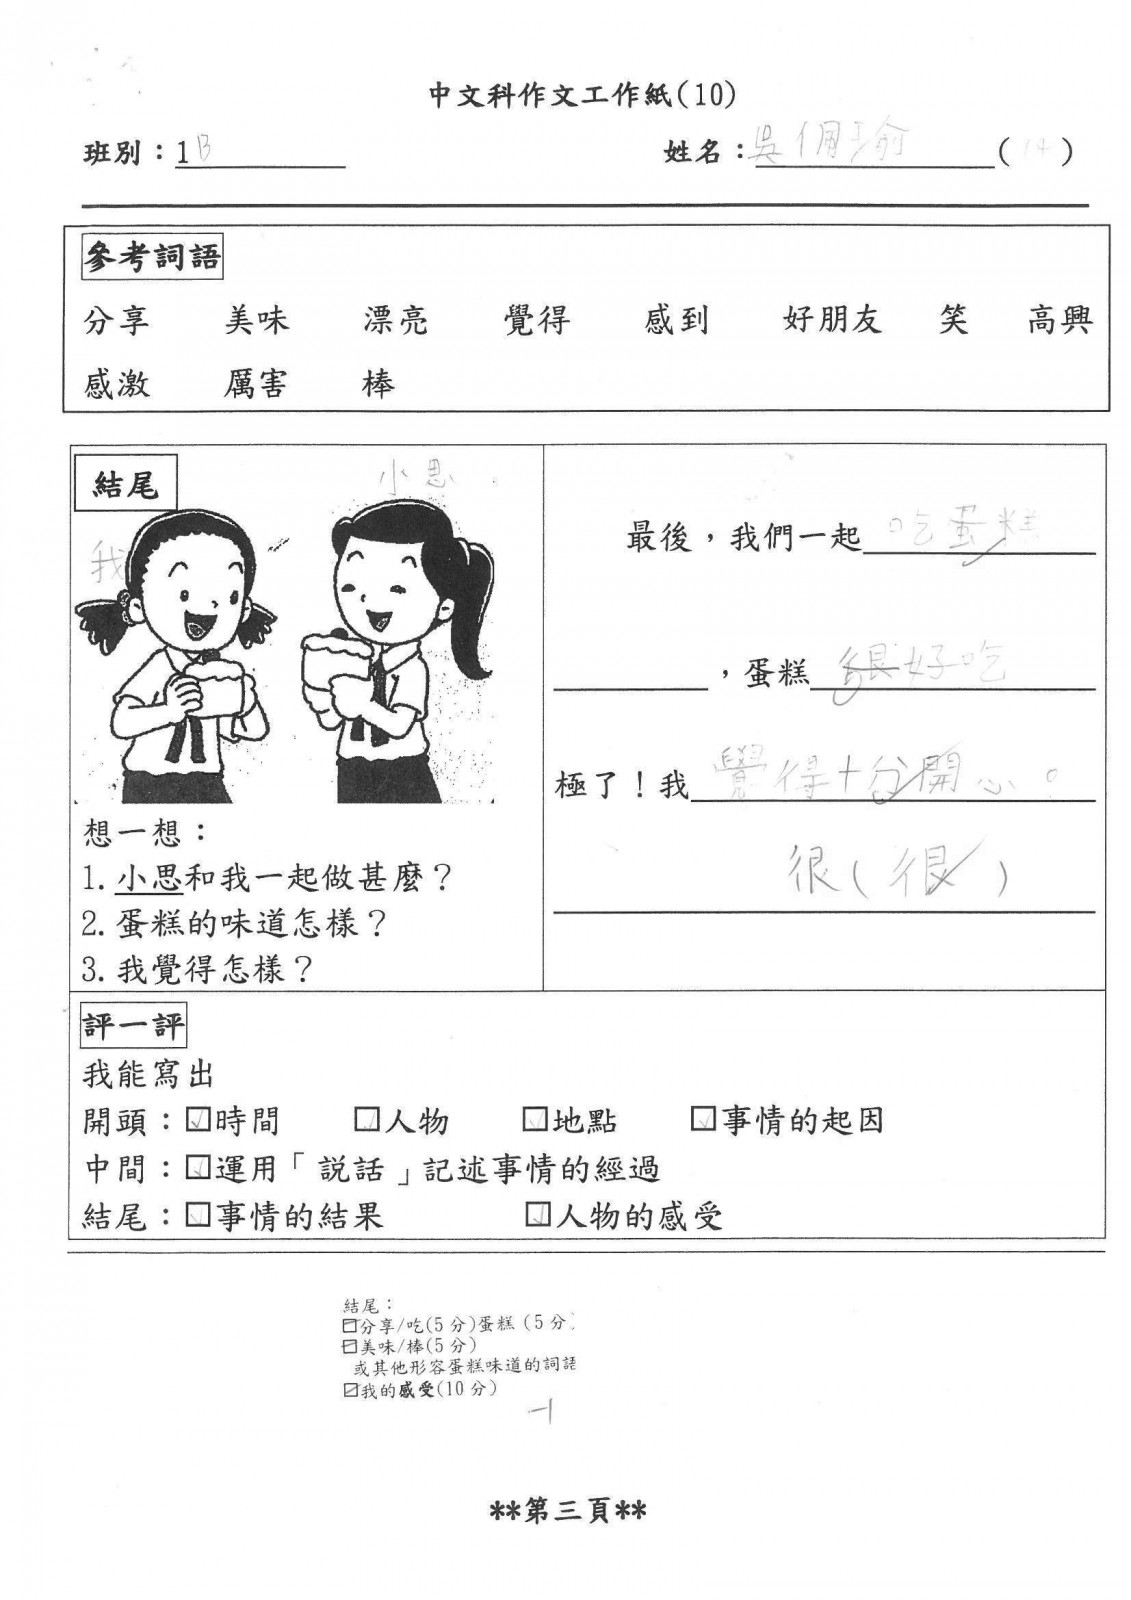 中文科作文工作紙(10)
班別：1B 姓名：吳佩瑜 (14)
參考詞語
分享 美味 漂亮 覺得 感到 好朋友 笑 高興
感激 厲害 棒
結尾
小思
我
想一想：
1. 小思和我一起做甚麼？
2. 蛋糕的味道怎樣？
3. 我覺得怎樣？
最後，我們一起吃蛋糕
，蛋糕很好吃
極了！我覺得十分開心。
很(很)
評一評
我能寫出
開頭：☑時間 ☑人物 ☑地點 ☑事情的起因
中間：☑運用「說話」記述事情的經過
結尾：☑事情的結果 ☑人物的感受
結尾：
☑分享/吃(5分)蛋糕(5分)
☑美味/棒(5分)
或其他形容蛋糕味道的詞語
☑我的感受(10分)
-1
**第三頁**